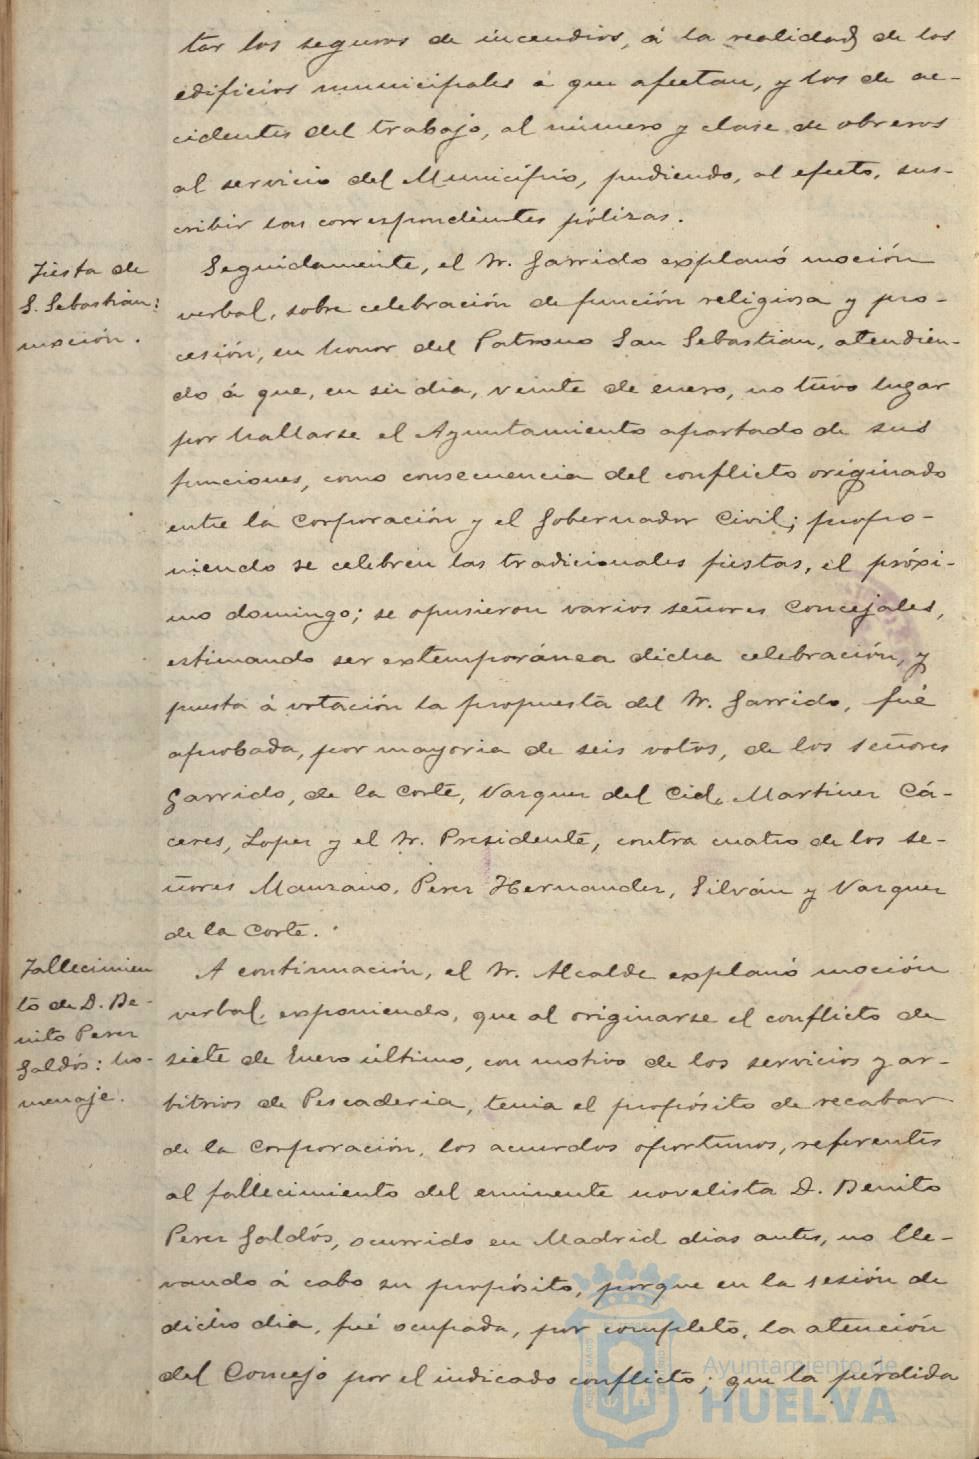 tar los seguros de incendios, á la realidad de los
edificios municipales á que afectan, y los de ac-
cidentes del trabajo, al número y clase de obreros
al servicio del Municipio, pudiendo, al efecto, sus-
cribir las correspondientes pólizas.
Fiesta de
S. Sebastian:
moción.
Seguidamente, el Sr. Garrido explanó moción
verbal, sobre celebración de función religiosa y pro-
cesión, en honor del Patrono San Sebastian, atendien-
do á que, en su dia, veinte de enero, no tuvo lugar
por hallarse el Ayuntamiento apartado de sus
funciones, como consecuencia del conflicto originado
entre la Corporación y el Gobernador Civil; propo-
niendo se celebren las tradicionales fiestas, el próxi-
mo domingo; se opusieron varios señores Concejales,
estimando ser extemporánea dicha celebración, y
puesta á votación la propuesta del Sr. Garrido, fué
aprobada, por mayoria de seis votos, de los señores
Garrido, de la Corte, Vazquez del Cid, Martinez Cá-
ceres, Lopez y el Sr. Presidente, contra cuatro de los se-
ñores Manzano, Perez Hernandez, Silván y Vazquez
de la Corte.
Fallecimien
to de D. Be-
nito Perez
Galdós: ho-
menaje.
A continuación, el Sr. Alcalde explanó moción
verbal, exponiendo, que al originarse el conflicto de
siete de Enero último, con motivo de los servicios y ar-
bitrios de Pescaderia, tenia el propósito de recabar
de la Corporación, los acuerdos oportunos, referentes
al fallecimiento del eminente novelista D. Benito
Perez Galdós, ocurrido en Madrid dias antes, no lle-
vando á cabo su propósito, porque en la sesión de
dicho dia, fué ocupada, por completo, la atención
del Concejo por el indicado conflicto; que la perdida
Ayuntamiento de
HUELVA